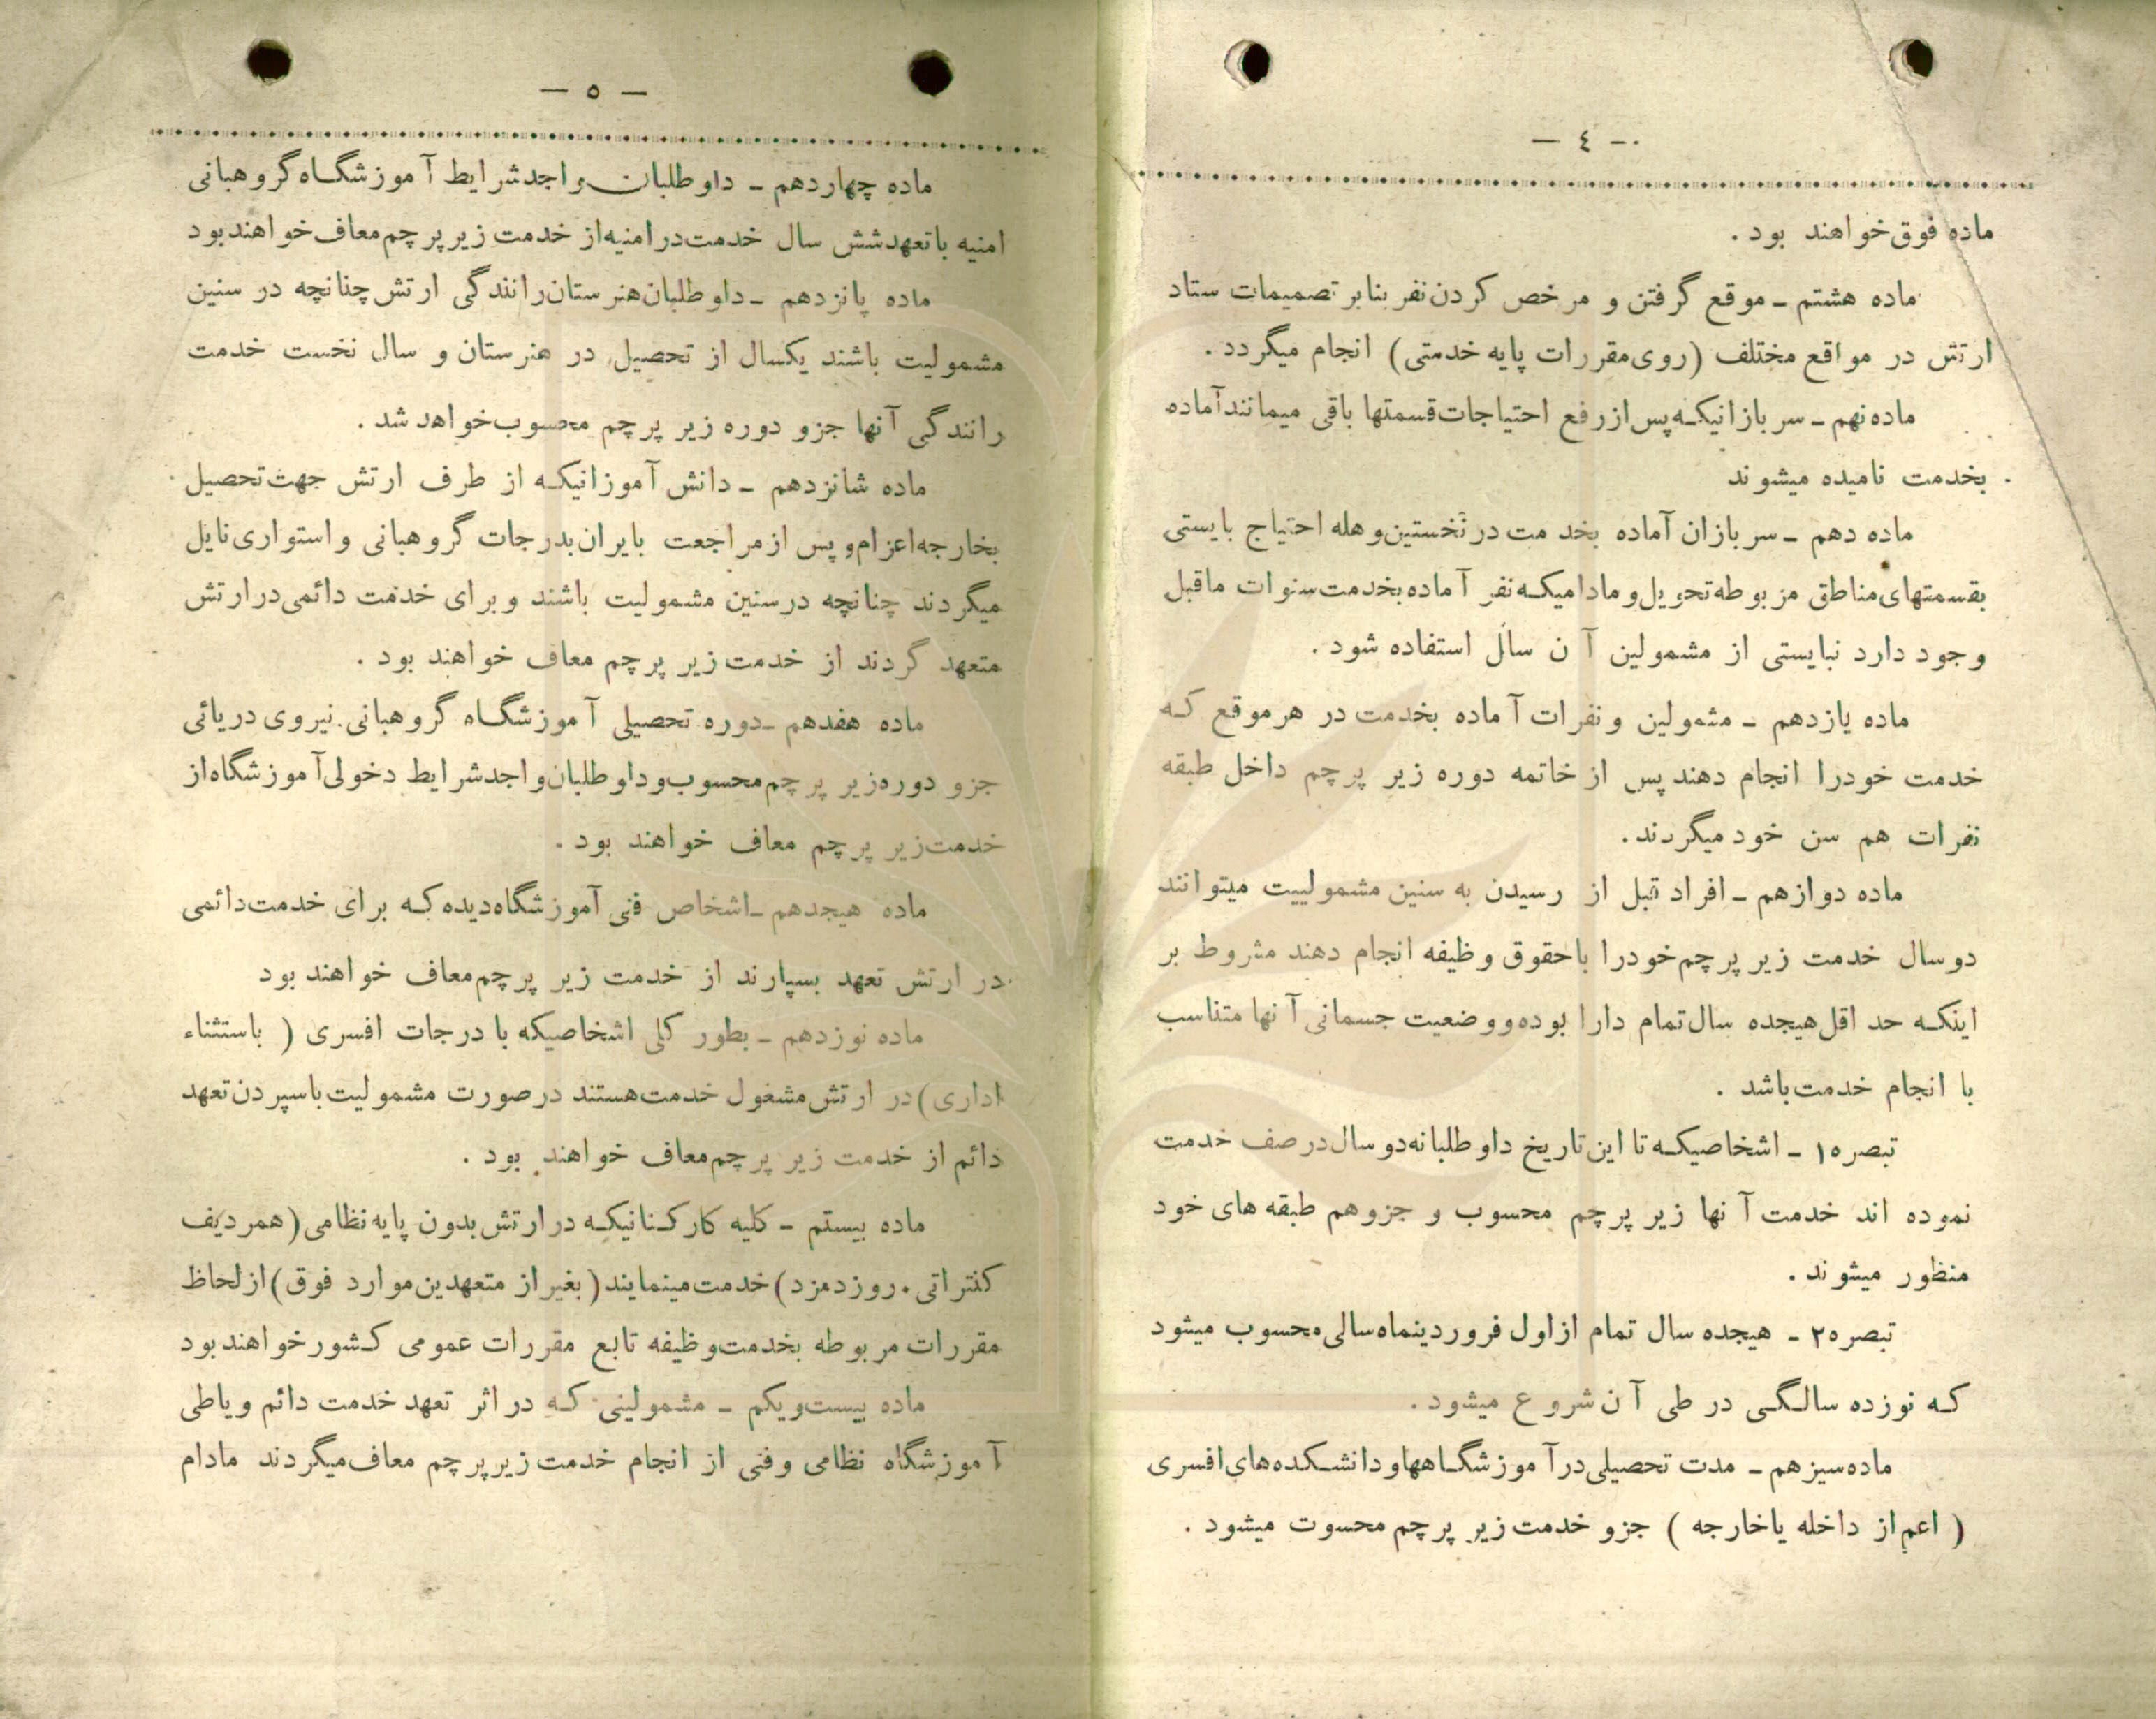 — ٤ —
ماده فوق خواهند بود .
ماده هشتم ـ موقع گرفتن و مرخص کردن نفر بنابر تصمیمات ستاد
ارتش در مواقع مختلف (روی مقررات پایه خدمتی) انجام میگردد .
ماده نهم ـ سربازانیکه پس از رفع احتیاجات قسمتها باقی میمانند آماده
بخدمت نامیده میشوند
ماده دهم ـ سربازان آماده بخدمت در نخستین وهله احتیاج بایستی
بقسمتهای مناطق مزبوطه تحویل و مادامیکه نفر آماده بخدمت سنوات ماقبل
وجود دارد نبایستی از مشمولین آن سال استفاده شود .
ماده یازدهم ـ مشمولین و نفرات آماده بخدمت در هر موقع که
خدمت خودرا انجام دهند پس از خاتمه دوره زیر پرچم داخل طبقه
نفرات هم سن خود میگردند .
ماده دوازهم ـ افراد قبل از رسیدن به سنین مشمولییت میتوانند
دوسال خدمت زیر پرچم خودرا باحقوق وظیفه انجام دهند مشروط بر
اینکه حد اقل هیجده سال تمام دارا بوده و وضعیت جسمانی آنها متناسب
با انجام خدمت باشد .
تبصره ۱ ـ اشخاصیکه تا این تاریخ داوطلبانه دو سال در صف خدمت
نموده اند خدمت آنها زیر پرچم محسوب و جزو هم طبقه های خود
منظور میشوند .
تبصره ۲ ـ هیجده سال تمام از اول فروردینماه سالی محسوب میشود
که نوزده سالگی در طی آن شروع میشود .
ماده سیزهم ـ مدت تحصیلی در آموزشگاهها و دانشکده های افسری
( اعم از داخله یا خارجه ) جزو خدمت زیر پرچم محسوت میشود .
— ٥ —
ماده چهاردهم ـ داوطلبان واجد شرایط آموزشگاه گروهبانی
امنیه با تعهد شش سال خدمت در امنیه از خدمت زیر پرچم معاف خواهند بود
ماده پانزدهم ـ داوطلبان هنرستان رانندگی ارتش چنانچه در سنین
مشمولیت باشند یکسال از تحصیل در هنرستان و سال نخست خدمت
رانندگی آنها جزو دوره زیر پرچم محسوب خواهد شد .
ماده شانزدهم ـ دانش آموزانیکه از طرف ارتش جهت تحصیل
بخارجه اعزام و پس از مراجعت بایران بدرجات گروهبانی و استواری نایل
میگردند چنانچه در سنین مشمولیت باشند و برای خدمت دائمی در ارتش
متعهد گردند از خدمت زیر پرچم معاف خواهند بود .
ماده هفدهم ـ دوره تحصیلی آموزشگاه گروهبانی نیروی دریائی
جزو دوره زیر پرچم محسوب و داوطلبان واجد شرایط دخولی آموزشگاه از
خدمت زیر پرچم معاف خواهند بود .
ماده هیجدهم ـ اشخاص فنی آموزشگاه دیده که برای خدمت دائمی
در ارتش تعهد بسپارند از خدمت زیر پرچم معاف خواهند بود
ماده نوزدهم ـ بطور کلی اشخاصیکه با درجات افسری ( باستثناء
اداری ) در ارتش مشغول خدمت هستند در صورت مشمولیت باسپردن تعهد
دائم از خدمت زیر پرچم معاف خواهند بود .
ماده بیستم ـ کلیه کارکنانیکه در ارتش بدون پایه نظامی ( همردیف
کنتراتی . روزدمزد ) خدمت مینمایند ( بغیر از متعهدین موارد فوق ) از لحاظ
مقررات مربوطه بخدمت وظیفه تابع مقررات عمومی کشور خواهند بود
ماده بیست و یکم ـ مشمولینی که در اثر تعهد خدمت دائم و یا طی
آموزشگاه نظامی و فنی از انجام خدمت زیر پرچم معاف میگردند مادام